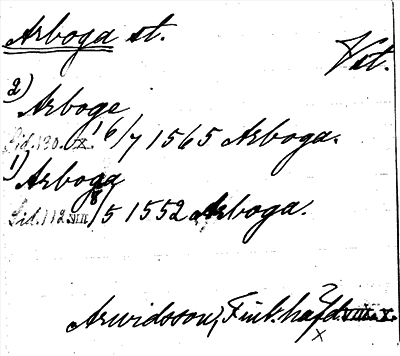 Arboga st.
Vst.
2) Arboge
Sid. 130. X. 16/7 1565 Arboga.
1) Arboga
Sid. 112 VIII 8/5 1552 Arboga.
Arwidsson, Finl. häfd. VIII. X.
x